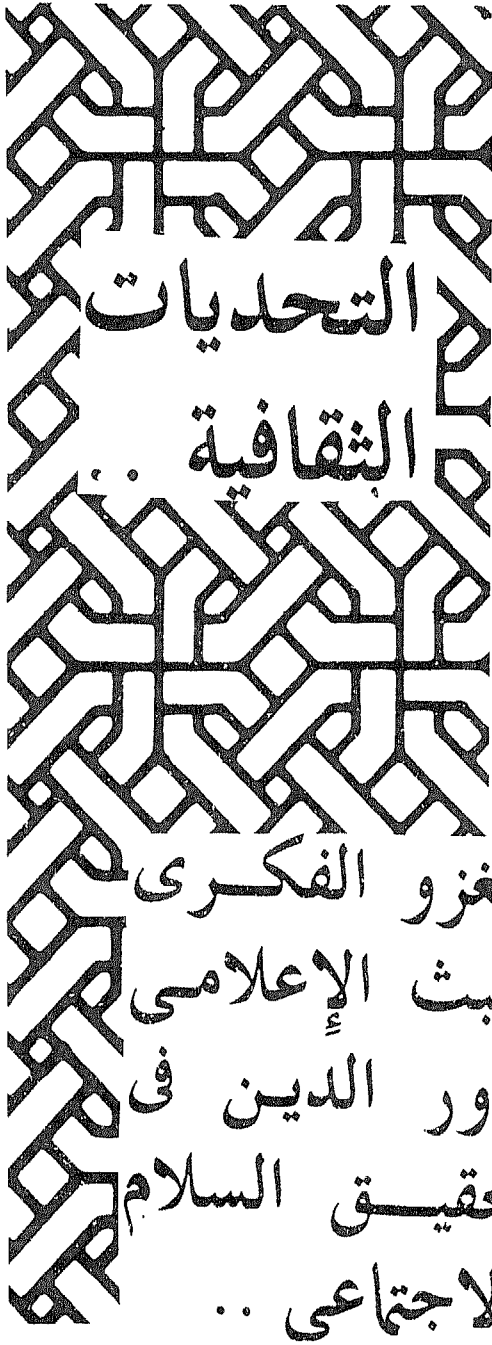 التحديات
الثقافية ..
غزو الفكرى
بث الإعلامى
ور الدين فى
قيق السلام
لاجتماعى ..